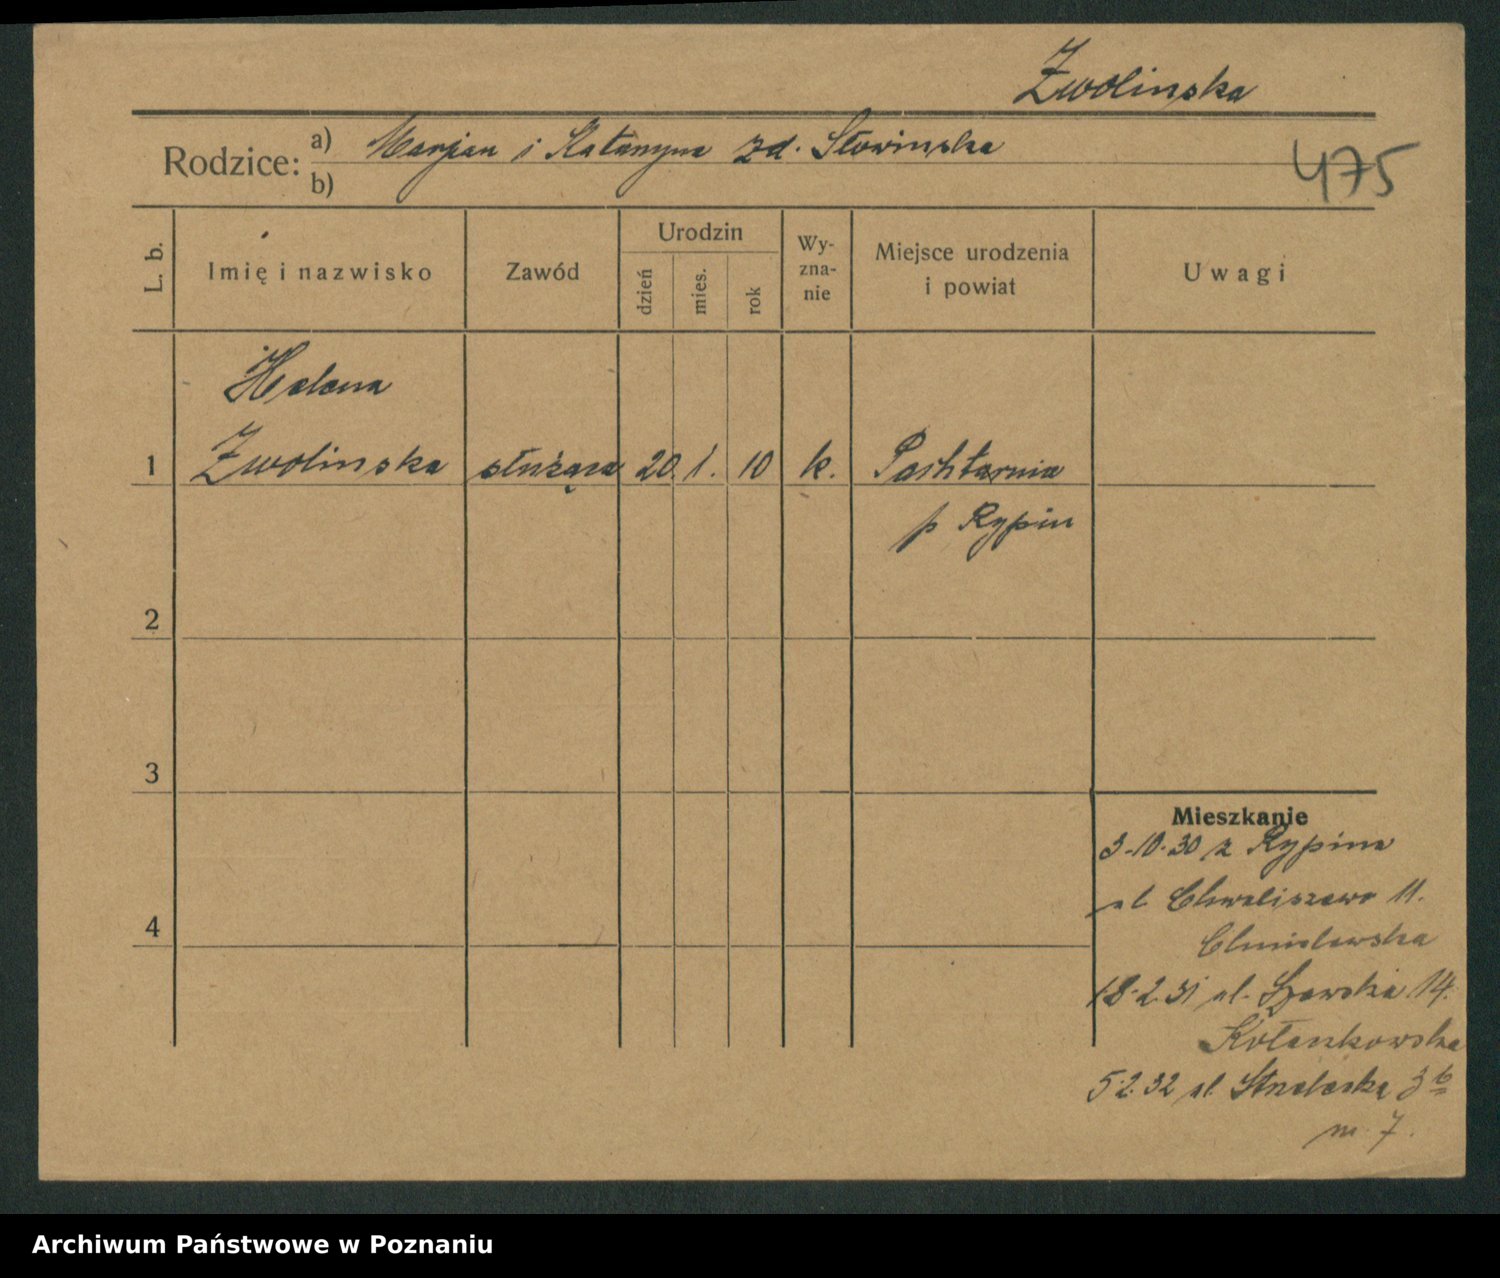 Zwolinska
Rodzice:
a) Marjan i Katarzyna zd. Słowinska
b)
475
L. b.
Imię i nazwisko
Zawód
Urodzin
dzień
mies.
rok
Wy-
zna-
nie
Miejsce urodzenia
i powiat
Uwagi
Helena
1 Zwolinska służąca 20. 1. 10 k.
p Rypin
2
3
4
Mieszkanie
3-10-30 z Rypina
ul. Chwaliszewo 11.
18-2.31 ul. Szewska 14.
5.2.32 ul. Strzelecka 3 b
m 7.
Archiwum Państwowe w Poznaniu